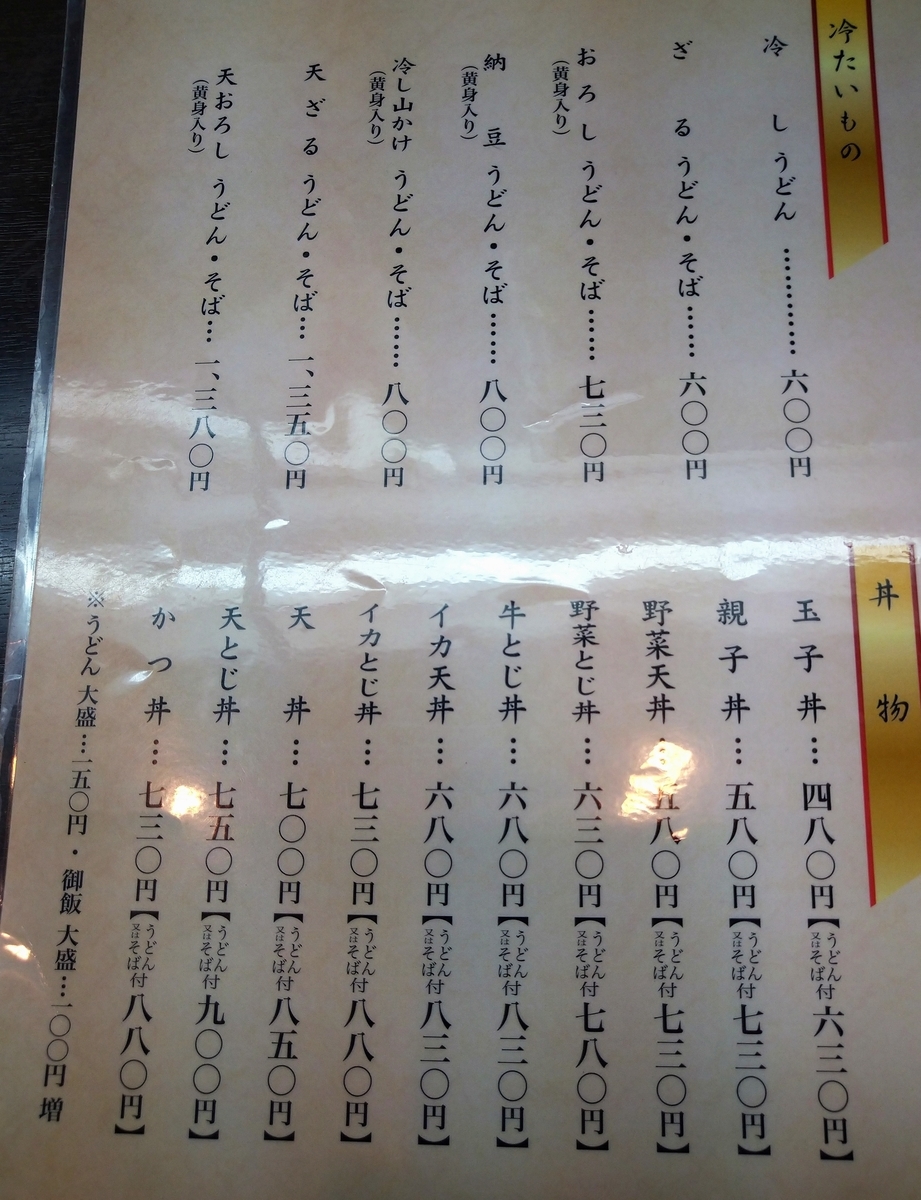 冷たいもの
冷しうどん…………六〇〇円
ざるうどん・そば……六〇〇円
おろし(黄身入り)うどん・そば……七三〇円
納豆(黄身入り)うどん・そば……八〇〇円
冷し山かけ(黄身入り)うどん・そば……八〇〇円
天ざるうどん・そば…一、三五〇円
天おろし(黄身入り)うどん・そば…一、三八〇円
丼物
玉子丼…四八〇円【うどん又はそば付六三〇円】
親子丼…五八〇円【うどん又はそば付七三〇円】
野菜天丼…五八〇円【うどん又はそば付七三〇円】
野菜とじ丼…六三〇円【うどん又はそば付七八〇円】
牛とじ丼…六八〇円【うどん又はそば付八三〇円】
イカ天丼…六八〇円【うどん又はそば付八三〇円】
イカとじ丼…七三〇円【うどん又はそば付八八〇円】
天丼…七〇〇円【うどん又はそば付八五〇円】
天とじ丼…七五〇円【うどん又はそば付九〇〇円】
かつ丼…七三〇円【うどん又はそば付八八〇円】
※うどん 大盛…一五〇円・御飯 大盛…一〇〇円 増